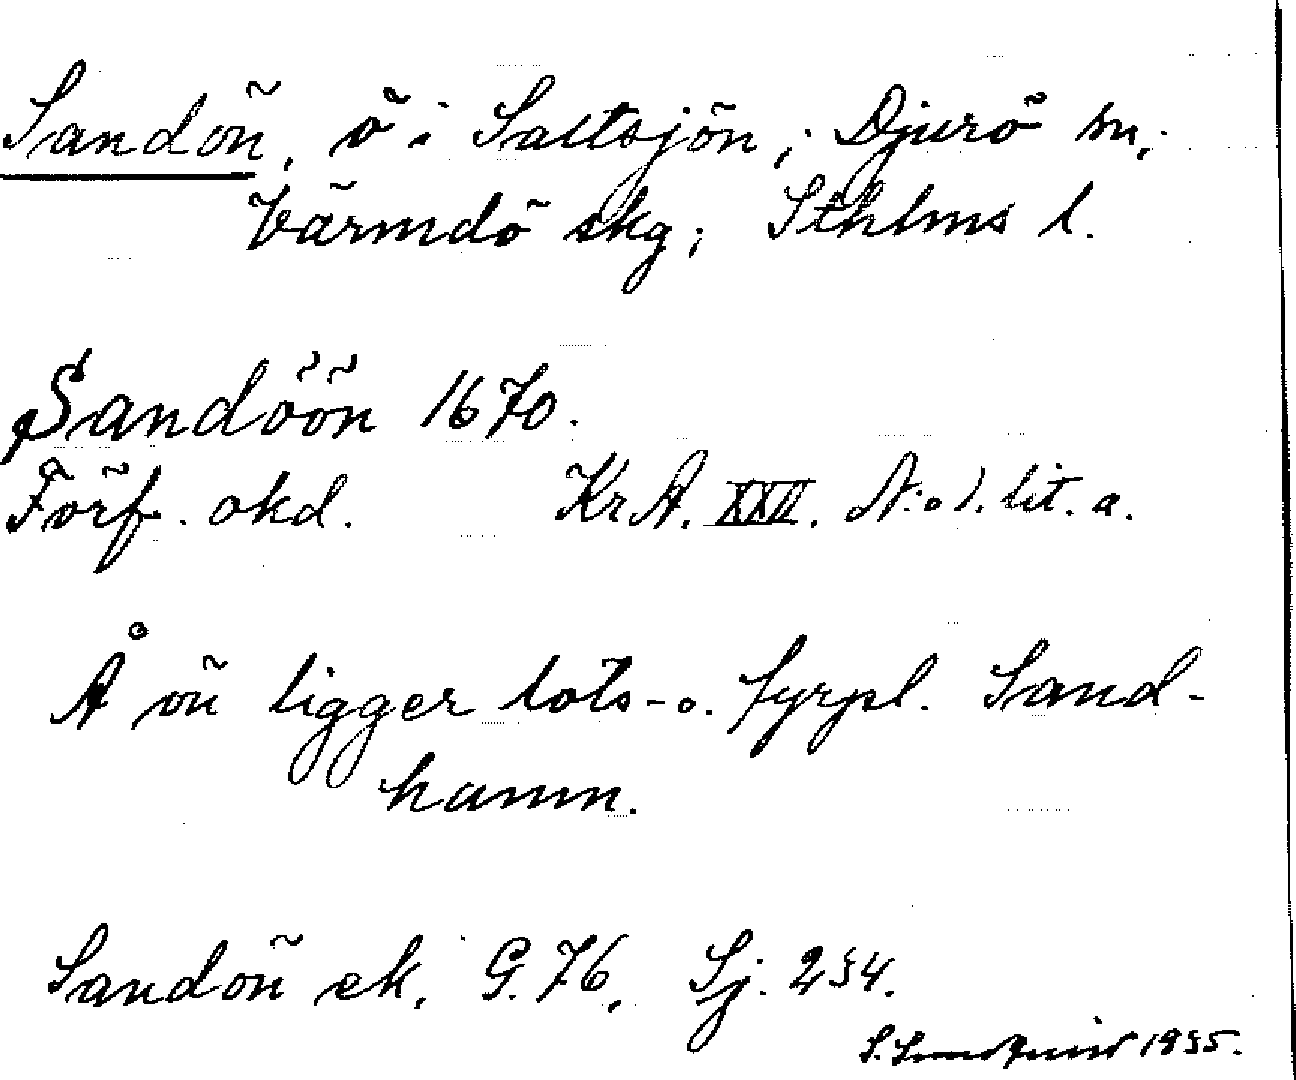 Sandön, ö i Saltsjön; Djurö sn;
Värmdö skg; Sthlms l.
Sandöön 1670.
Förf. okd. KrA. XXII. N:o 1. lit. a.
Å ön ligger lots- o. fyrpl. Sand-
hamn.
Sandön ek. G. 76, Sj. 234.
S. 1935.